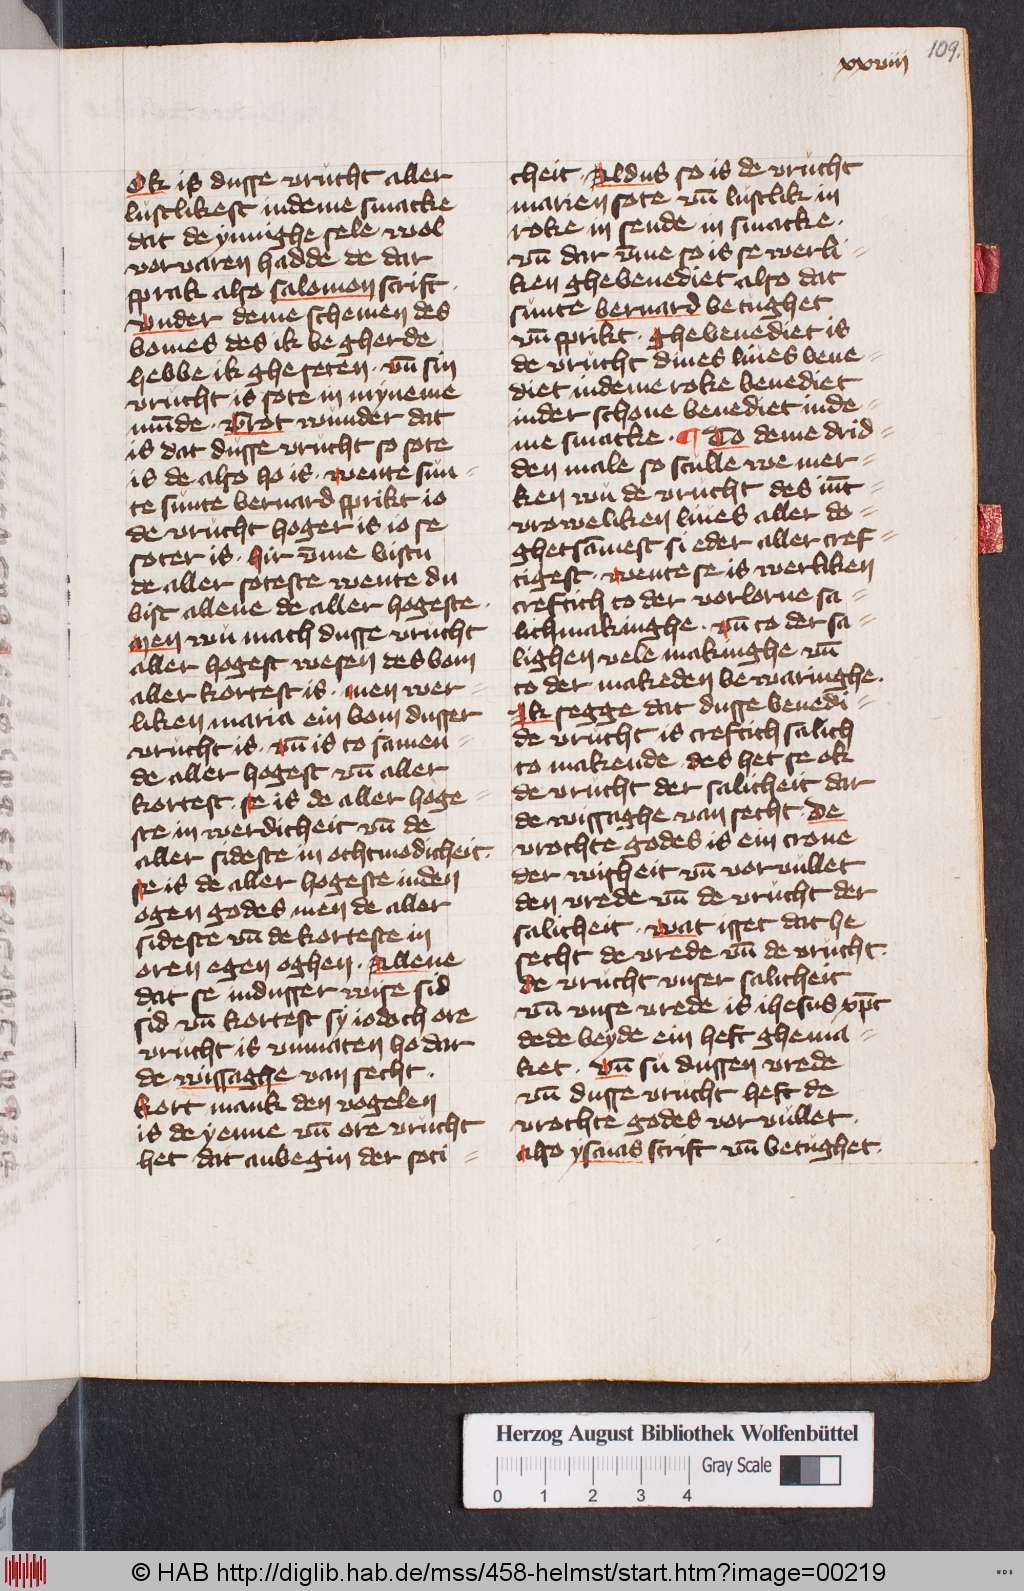 109.
xxviij
Ok is dusse vrucht aller
lustlikest indeme smacke
dat de ynnighe sele wol
vorvaren hadde de dar
sprak also salomon scrift.
Under deme schemen des
bomes des ik begherde
hebbe ik gheseten. vn̄ sin
vrucht is sote in myneme
mūde. Grot wunder dat
is dat dusse vrucht so sote
is de also ho is. wente sun=
te sunte bernard sprikt io
de vrucht hoger is io se
soter is. hir v̄me bistu
de aller soteste wente du
bist allene de aller hogeste.
Men wu mach dusse vrucht
aller hogest wesen des bom
aller kortest is. men wer=
liken maria ein bom dusser
vrucht is. vn̄ is to samen=
de aller hogest vn̄ aller
kortest. se is de aller hoge=
ste in werdicheit vn̄ de
aller sideste in othmodicheit.
se is de aller hogeste inden
ogen godes men de aller
sideste vn̄ de korteste in
oren egen oghen. Allene
dat se indusser wise sid
sid vn̄ kortest sy iodoch ore
vrucht is vnmaten ho dar
de wissaghe van secht.
kort mank den vogelen
is de yenne vn̄ ore vrucht
het dat anbegin der soti=
cheit. Aldus so is de vrucht
marien sote vn̄ lustlik in
roke in sende in smacke.
vn̄ dar v̄me so is se werli=
ken ghebenediet also dat
sunte bernard betughet
vn̄ sprikt. ghebenediet is
de vrucht dines liues bene=
diet indeme roke benediet
inder schone benediet inde=
me smacke. ¶ To deme drid=
den male so sculle we mer=
ken wu de vrucht des iūt=
vroweliken liues aller do=
ghetsāmest si eder aller cref=
tigest. wente se is werliken
creftich to der vorlorne sa=
lichmakinghe. vn̄ to der sa=
lighen vele makinghe vn̄
to der makeden bewaringhe.
Ik segge dat dusse benedi=
de vrucht is creftich salich
to makende. des het se ok
de vrucht der salicheit dar
de wissaghe van secht. De
vrochte godes is ein crone
der wisheit vn̄ vorvullet
den vrede vn̄ de vrucht der
salicheit. wat isset dat he
secht de vrede vn̄ de vrucht.
de vrucht vnser salicheit
vn̄ vnse vrede is ihesus xp̄c
dede beyde ein heft ghema=
ket. vn̄ su dussen vrede
vn̄ dusse vrucht heft de
vrochte godes vorvullet.
also ysaias scrift vn̄ betughet.
Herzog August Bibliothek Wolfenbüttel
Gray Scale
0 1 2 3 4
© HAB http://diglib.hab.de/mss/458-helmst/start.htm?image=00219